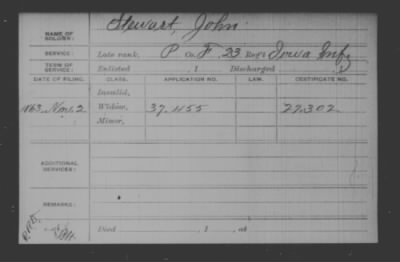 Stewart, John.
NAME OF
SOLDIER:
SERVICE: Late rank, P Co. F, 23 Reg't Iowa Inf
TERM OF
SERVICE: Enlisted , 1 Discharged , 1
DATE OF FILING. CLASS. APPLICATION NO. LAW. CERTIFICATE NO.
Invalid,
1863, Nov. 2 Widow, 37.455 27.302
Minor,
ADDITIONAL
SERVICES:
REMARKS:
Died , 1 , at